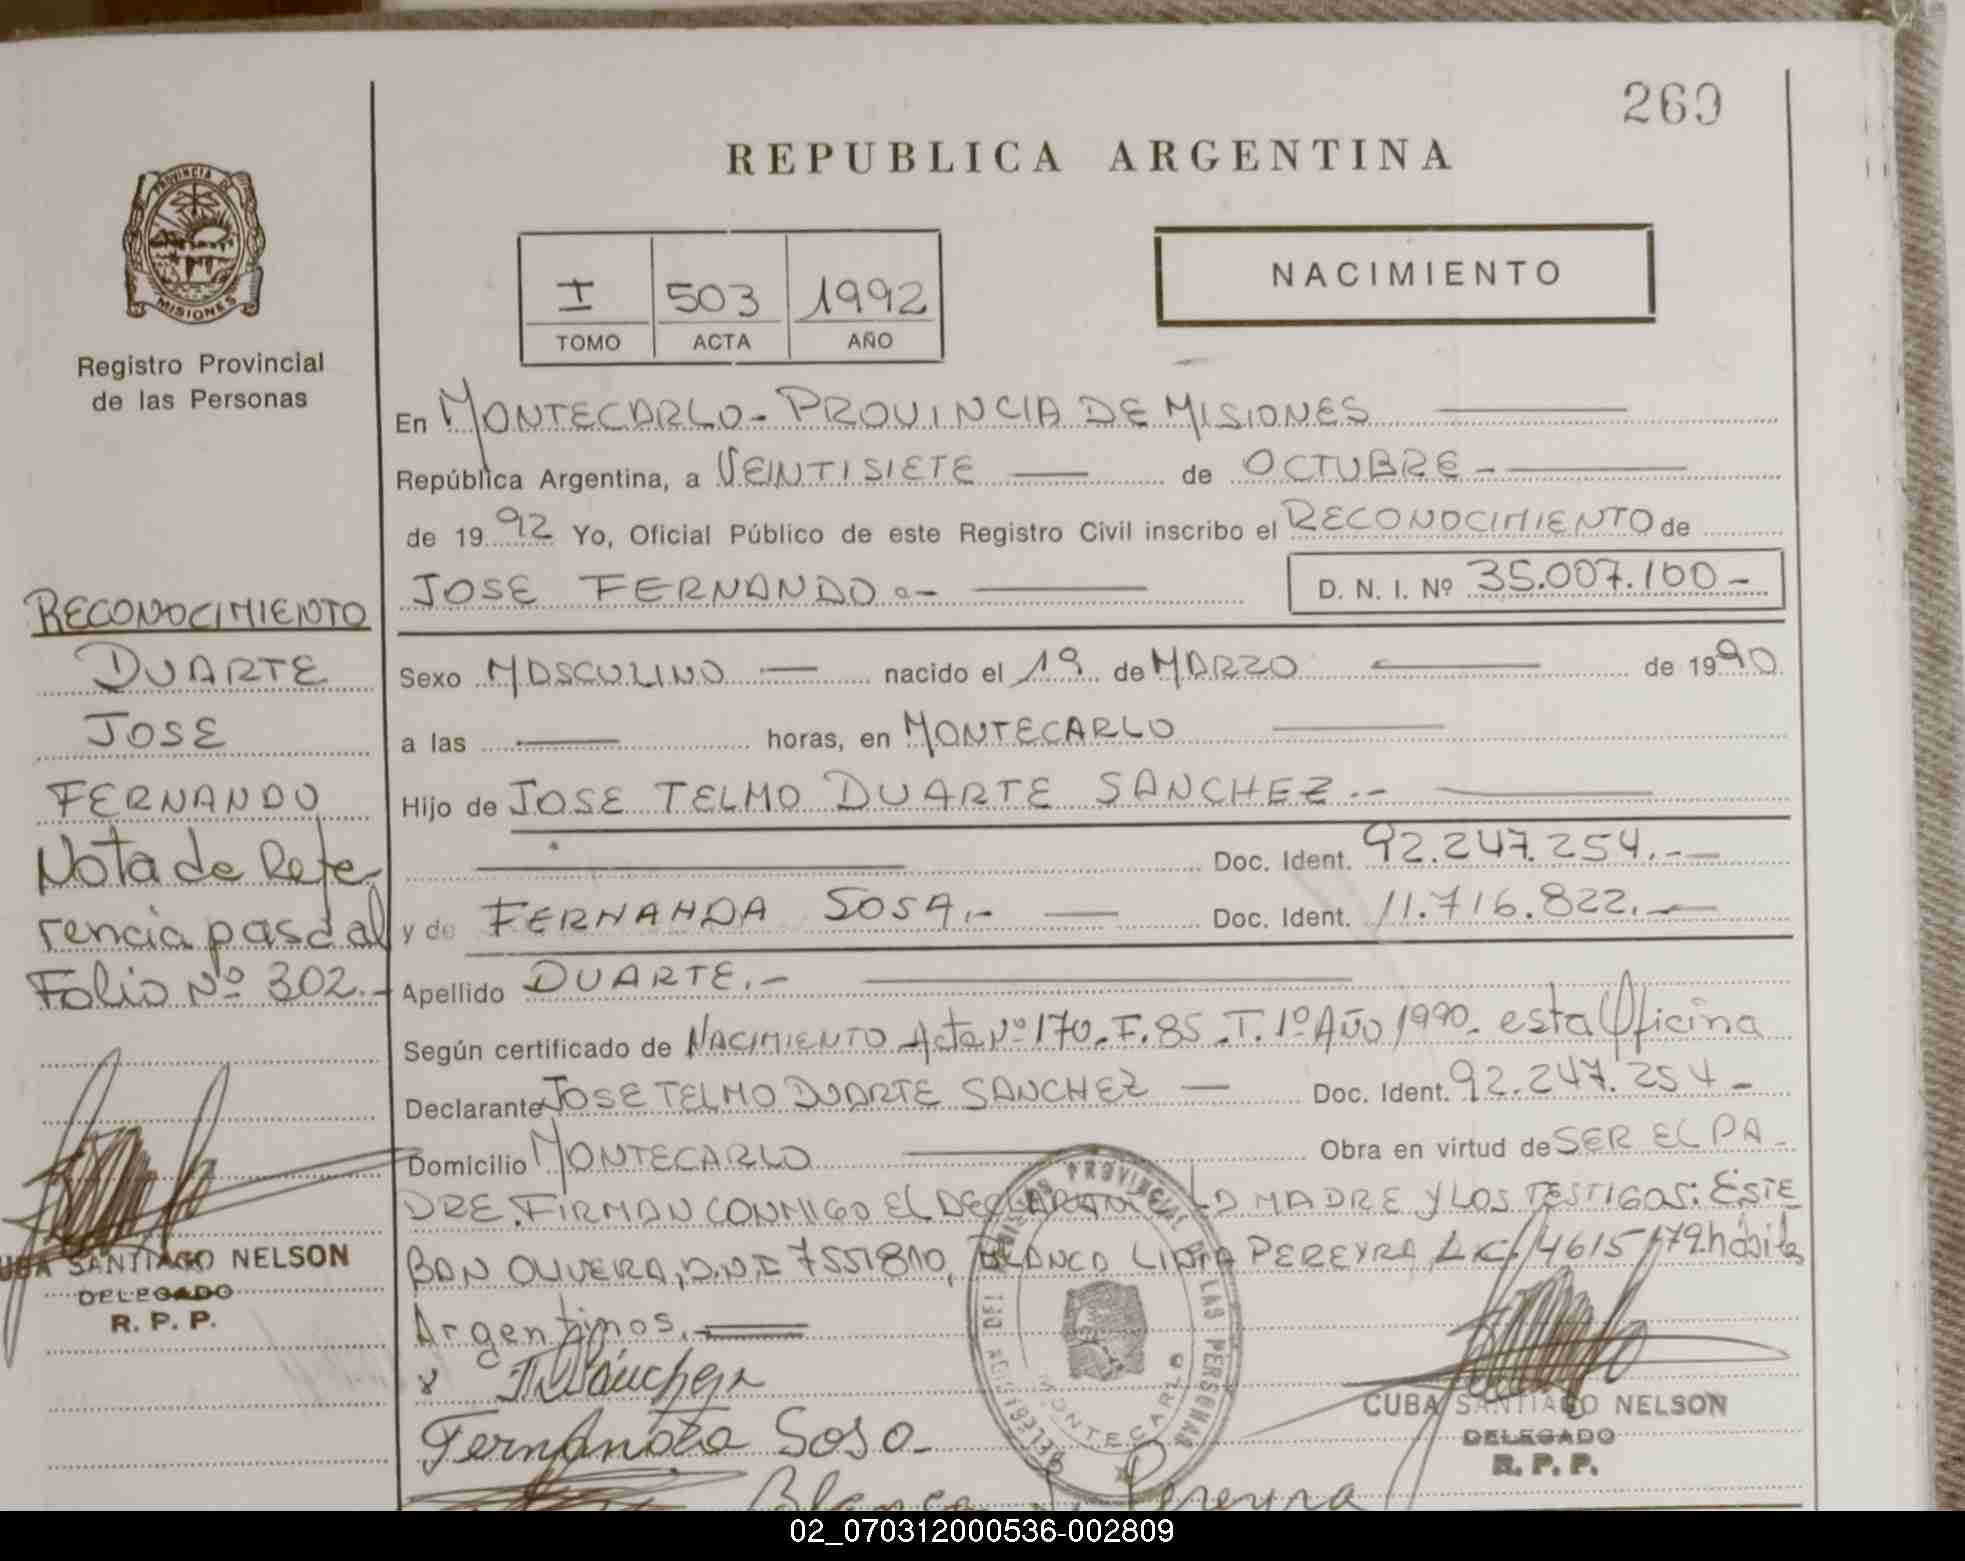 269
REPUBLICA ARGENTINA
PROVINCIA DE
MISIONES
Registro Provincial
de las Personas
I 503 1992
TOMO ACTA AÑO
NACIMIENTO
En MONTECARLO - PROVINCIA DE MISIONES
República Argentina, a VEINTISIETE de OCTUBRE -
de 1992 Yo, Oficial Público de este Registro Civil inscribo el RECONOCIMIENTO de
JOSE FERNANDO.-
D. N. I. Nº 35.007.100-
RECONOCIMIENTO
DUARTE
JOSE
FERNANDO
Nota de Refe
rencia pasa al
Folio Nº 302.-
Sexo MASCULINO nacido el 19 de MARZO de 1990
a las horas, en MONTECARLO
Hijo de JOSE TELMO DUARTE SANCHEZ.-
Doc. Ident. 92.247.254.-
y de FERNANDA SOSA.- Doc. Ident. 11.716.822.-
Apellido DUARTE.-
Según certificado de NACIMIENTO Acta Nº 170. F. 85. T. 1º Año 1990. esta Oficina
Declarante JOSE TELMO DUARTE SANCHEZ Doc. Ident. 92.247.254-
Domicilio MONTECARLO Obra en virtud de SER EL PA-
DRE. FIRMAN CONMIGO EL DECLARANTE LA MADRE Y LOS TESTIGOS: ESTE
BAN OLIVERA, D.N.I 7551810, BLANCA LIDIA PEREYRA, L.C. 4615179. hábiles
Argentinos.
Fernanda Sosa
Blanca Pereyra
CUBA SANTIAGO NELSON
DELEGADO
R. P. P.
CUBA SANTIAGO NELSON
DELEGADO
R. P. P.
PROVINCIAL DE LAS PERSONAS
MONTECARLO
02_070312000536-002809